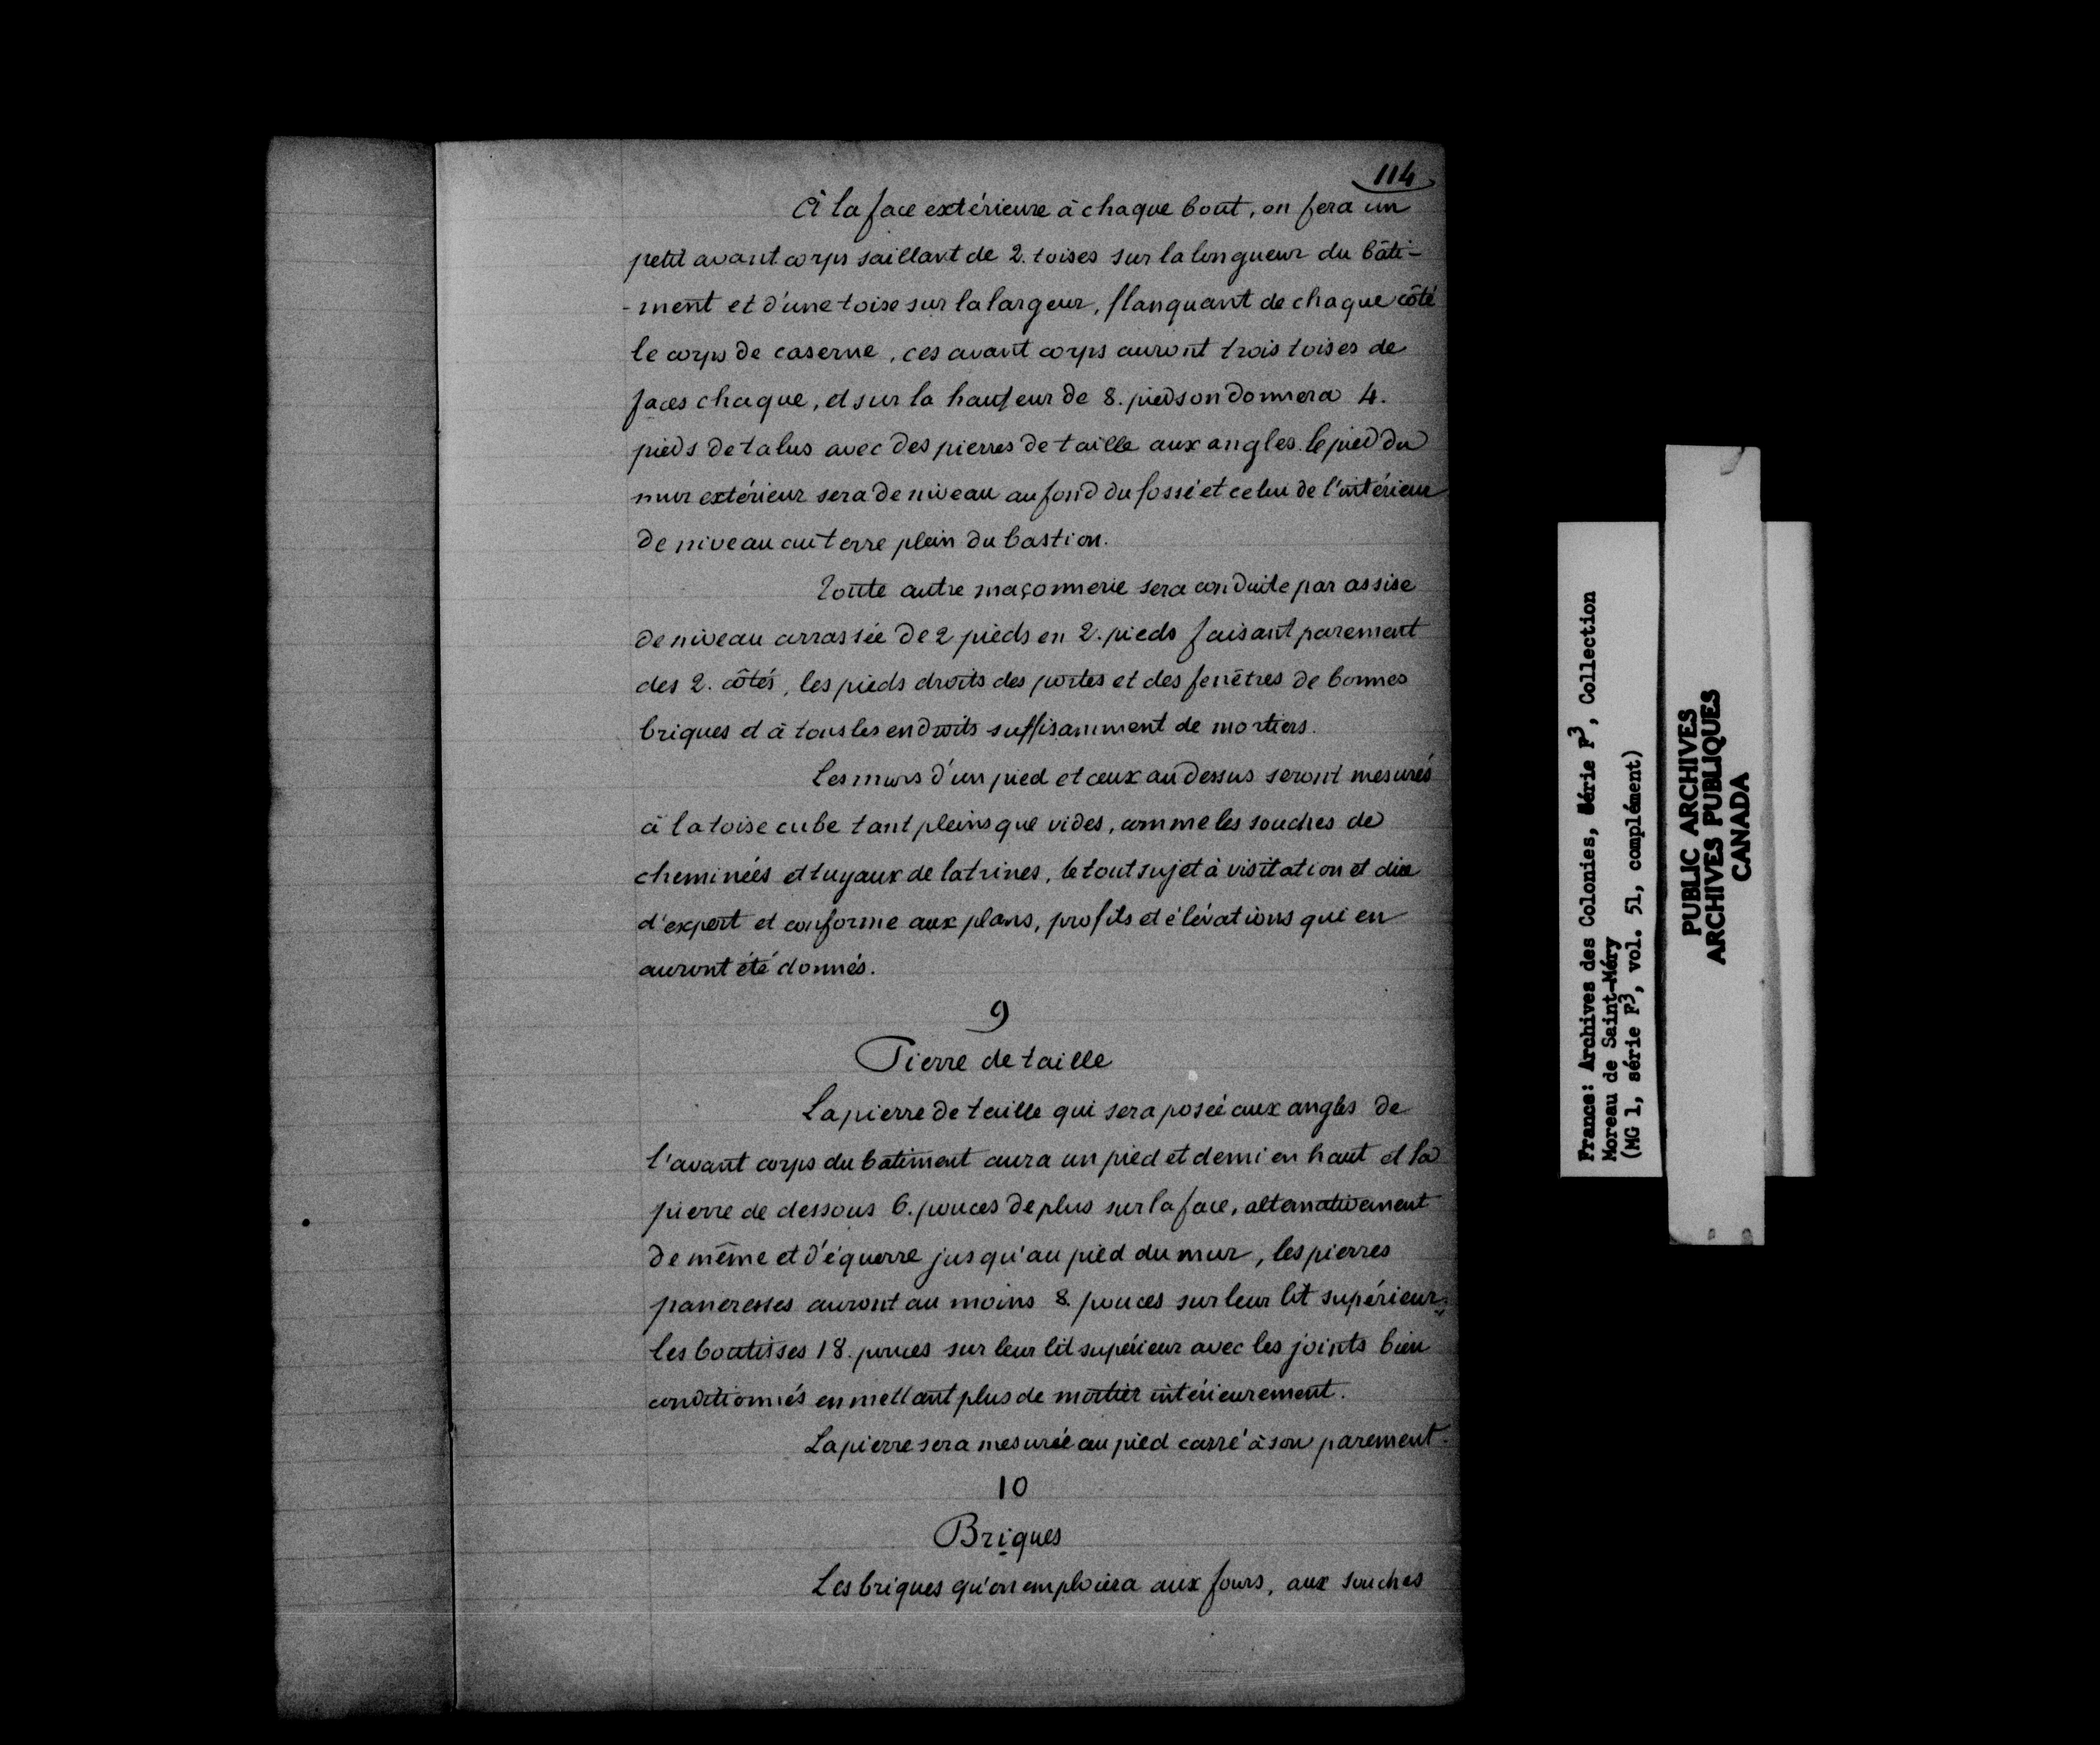 114
À la face extérieure à chaque bout, on fera un
petit avant corps saillant de 2. toises sur la longueur du bâti-
-ment et d'une toise sur la largeur, flanquant de chaque côté
le corps de caserne, ces avant corps auront trois toises de
faces chaque, et sur la hauteur de 8. pieds on donnera 4.
pieds de talus avec des pierres de taille aux angles. le pied du
mur extérieur sera de niveau au fond du fossé et celui de l'intérieur
de niveau au terre plein du bastion.
Toute autre maçonnerie sera conduite par assise
de niveau arrassée de 2 pieds en 2. pieds faisant parement
des 2. côtés, les pieds droits des portes et des fenêtres de bonnes
briques et à tous les endroits suffisamment de mortiers.
Les murs d'un pied et ceux au dessus seront mesurés
à la toise cube tant pleins que vides, comme les souches de
cheminées et tuyaux de latrines, le tout sujet à visitation et dire
d'expert et conforme aux plans, profils et élévations qui en
auront été donnés.
9
Pierre de taille
La pierre de taille qui sera posée aux angles de
l'avant corps du batiment aura un pied et demi en haut et la
pierre de dessous 6. pouces de plus sur la face, alternativement
de même et d'équerre jusqu'au pied du mur, les pierres
paneresses auront au moins 8. pouces sur leur lit supérieur,
les boutisses 18. pouces sur leur lit supérieur avec les joints bien
conditionnés en mettant plus de mortier intérieurement.
La pierre sera mesurée au pied carré à son parement.
10
Briques
Les briques qu'on emploiera aux fours, aux souches
France: Archives des Colonies, Série F3, Collection
Moreau de Saint-Méry
(MG 1, série F3, vol. 51, complément)
PUBLIC ARCHIVES
ARCHIVES PUBLIQUES
CANADA